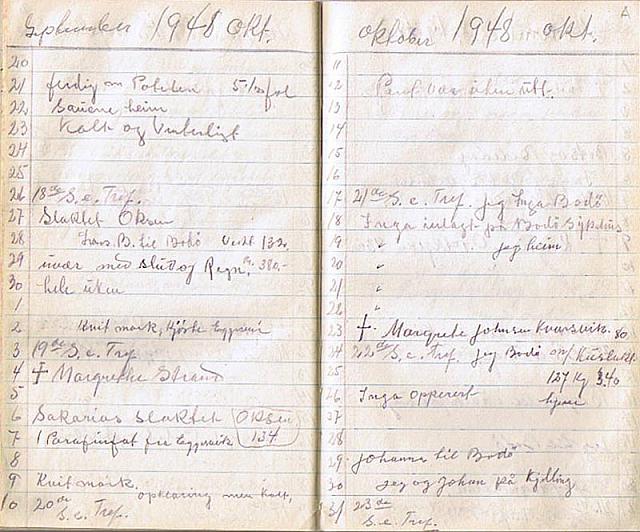 September 1948 Okt.
20
21 ferdig m Poteten 5 1/2 fat
22 Sauene heim
23 Kalt og Vinterligt
24
25
26 18de S. e. Tref.
27 Slaktet Oksen
28 Frans. B. til Bodø Vekt 132
29 uvær med Slud og Regn, Kr. 380,-
30 hele uken
1
2 Kvit mark,
3 19de S. e. Tref
4 † Margrethe Strand
5
6 Sakarias slaktet Oksen
7 1 Parafinfat fra 134
8
9 Kvit mark,
opklaring men kalt,
10 20de S. e. Tref.
Oktober 1948 Okt.
11
12 Pent vær uken utt.
13
14
15
16
17 21de S. e. Tref. jeg Inga Bodø
18 Inga inlagt på Bodø Sykehus
19 " jeg heim
20 "
21 "
22 "
23 † Margrethe Johnsen 80
24 22de S. e. Tref. jeg Bodø
25 127 Kg 3.40
26 Inga opperert
27
28
29 Johanna til Bodø
30 jeg og Johan på Kjelling
31 23de S. e. Tref.